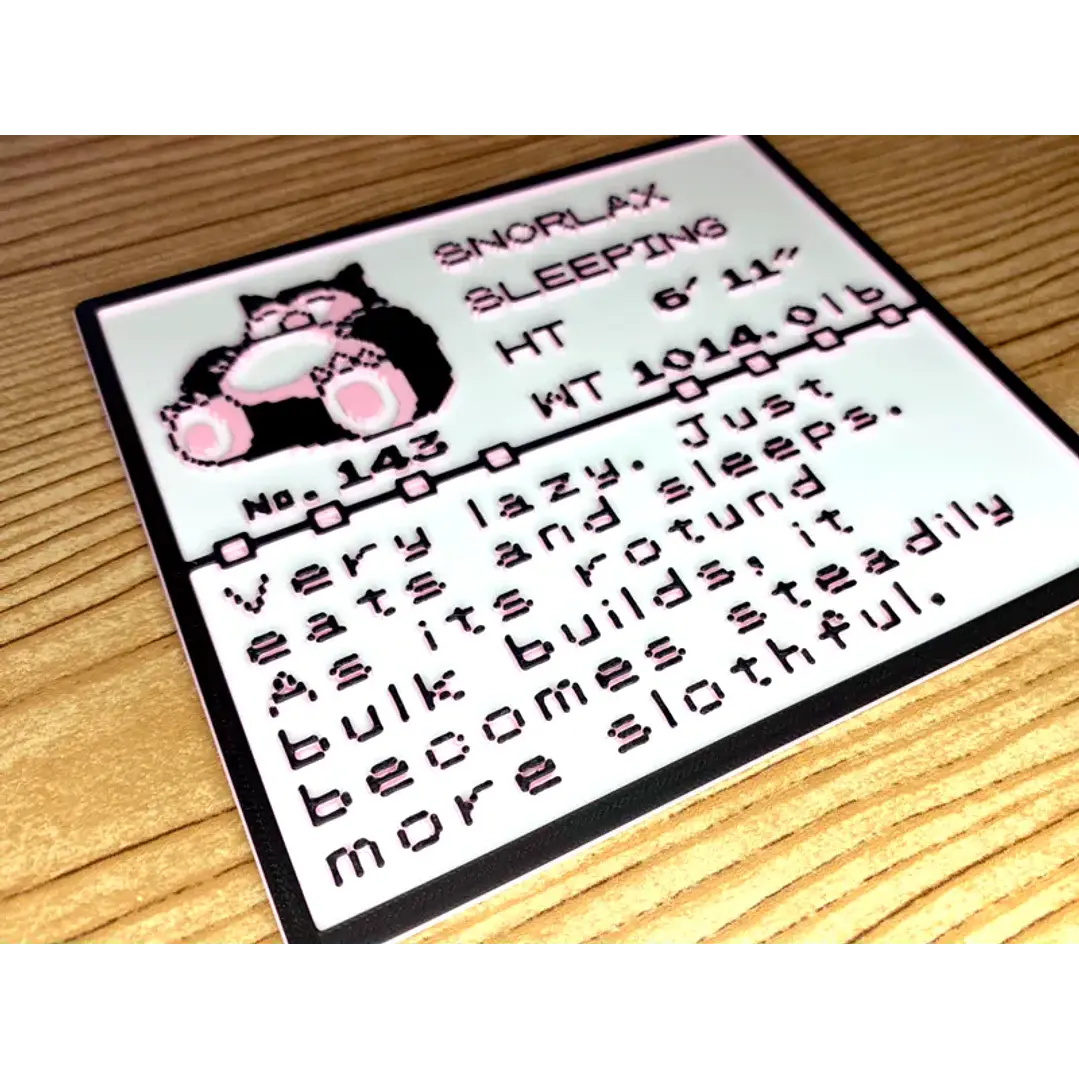 SNORLAX
SLEEPING
HT 6′ 11″
WT 1014.0lb
No. 143
Very lazy. Just
eats and sleeps.
As its rotund
bulk builds, it
becomes steadily
more slothful.